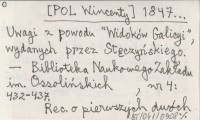 [POL Wincenty] 1847...
Uwagi z powodu "Widoków Galicyi",
wydanych przez Stęczyńskiego.
— Biblioteka Naukowego Zakładu
im. Ossolińskich, nr 4:
432-437.
Rec. o pierwszych dwóch